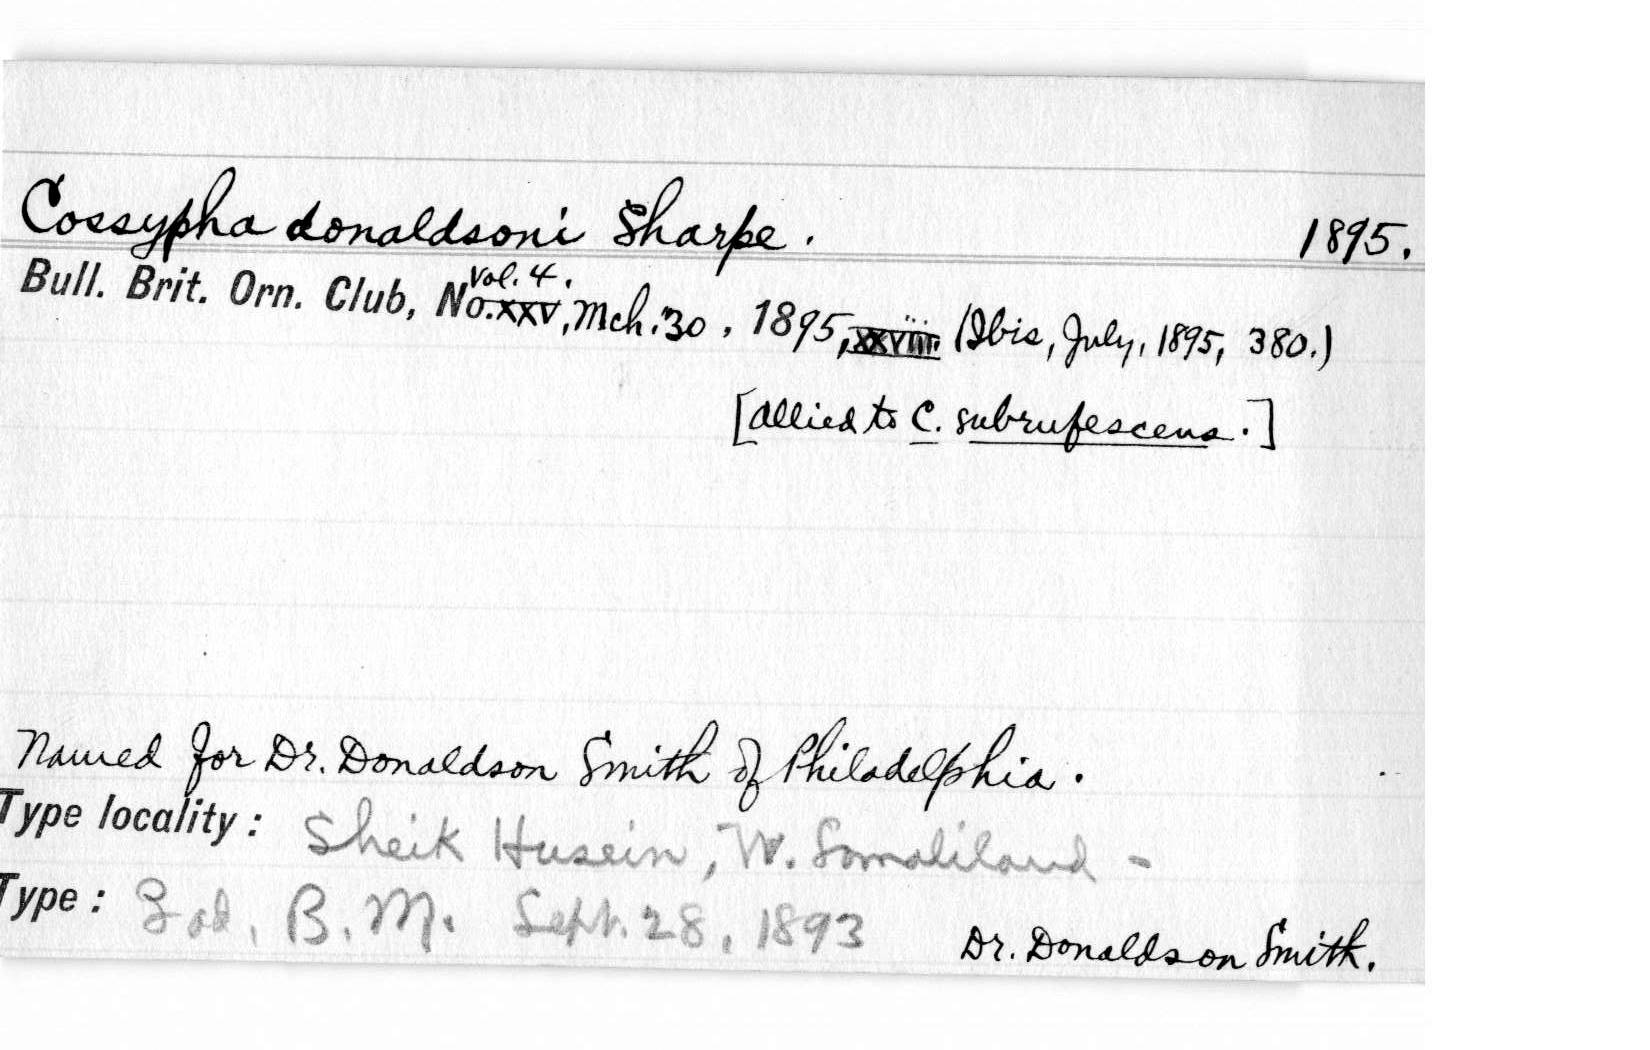 Cossypha donaldsoni Sharpe. 1895.
Vol. 4.
Bull. Brit. Orn. Club, No. XXV, Mch. 30, 1895, xxviii (Ibis, July, 1895, 380.)
[allied to C. subrufescens.]
Named for Dr. Donaldson Smith of Philadelphia.
Type locality: Sheik Husein, W. Somaliland -
Type: B. M. Sept. 28, 1893
Dr. Donaldson Smith.